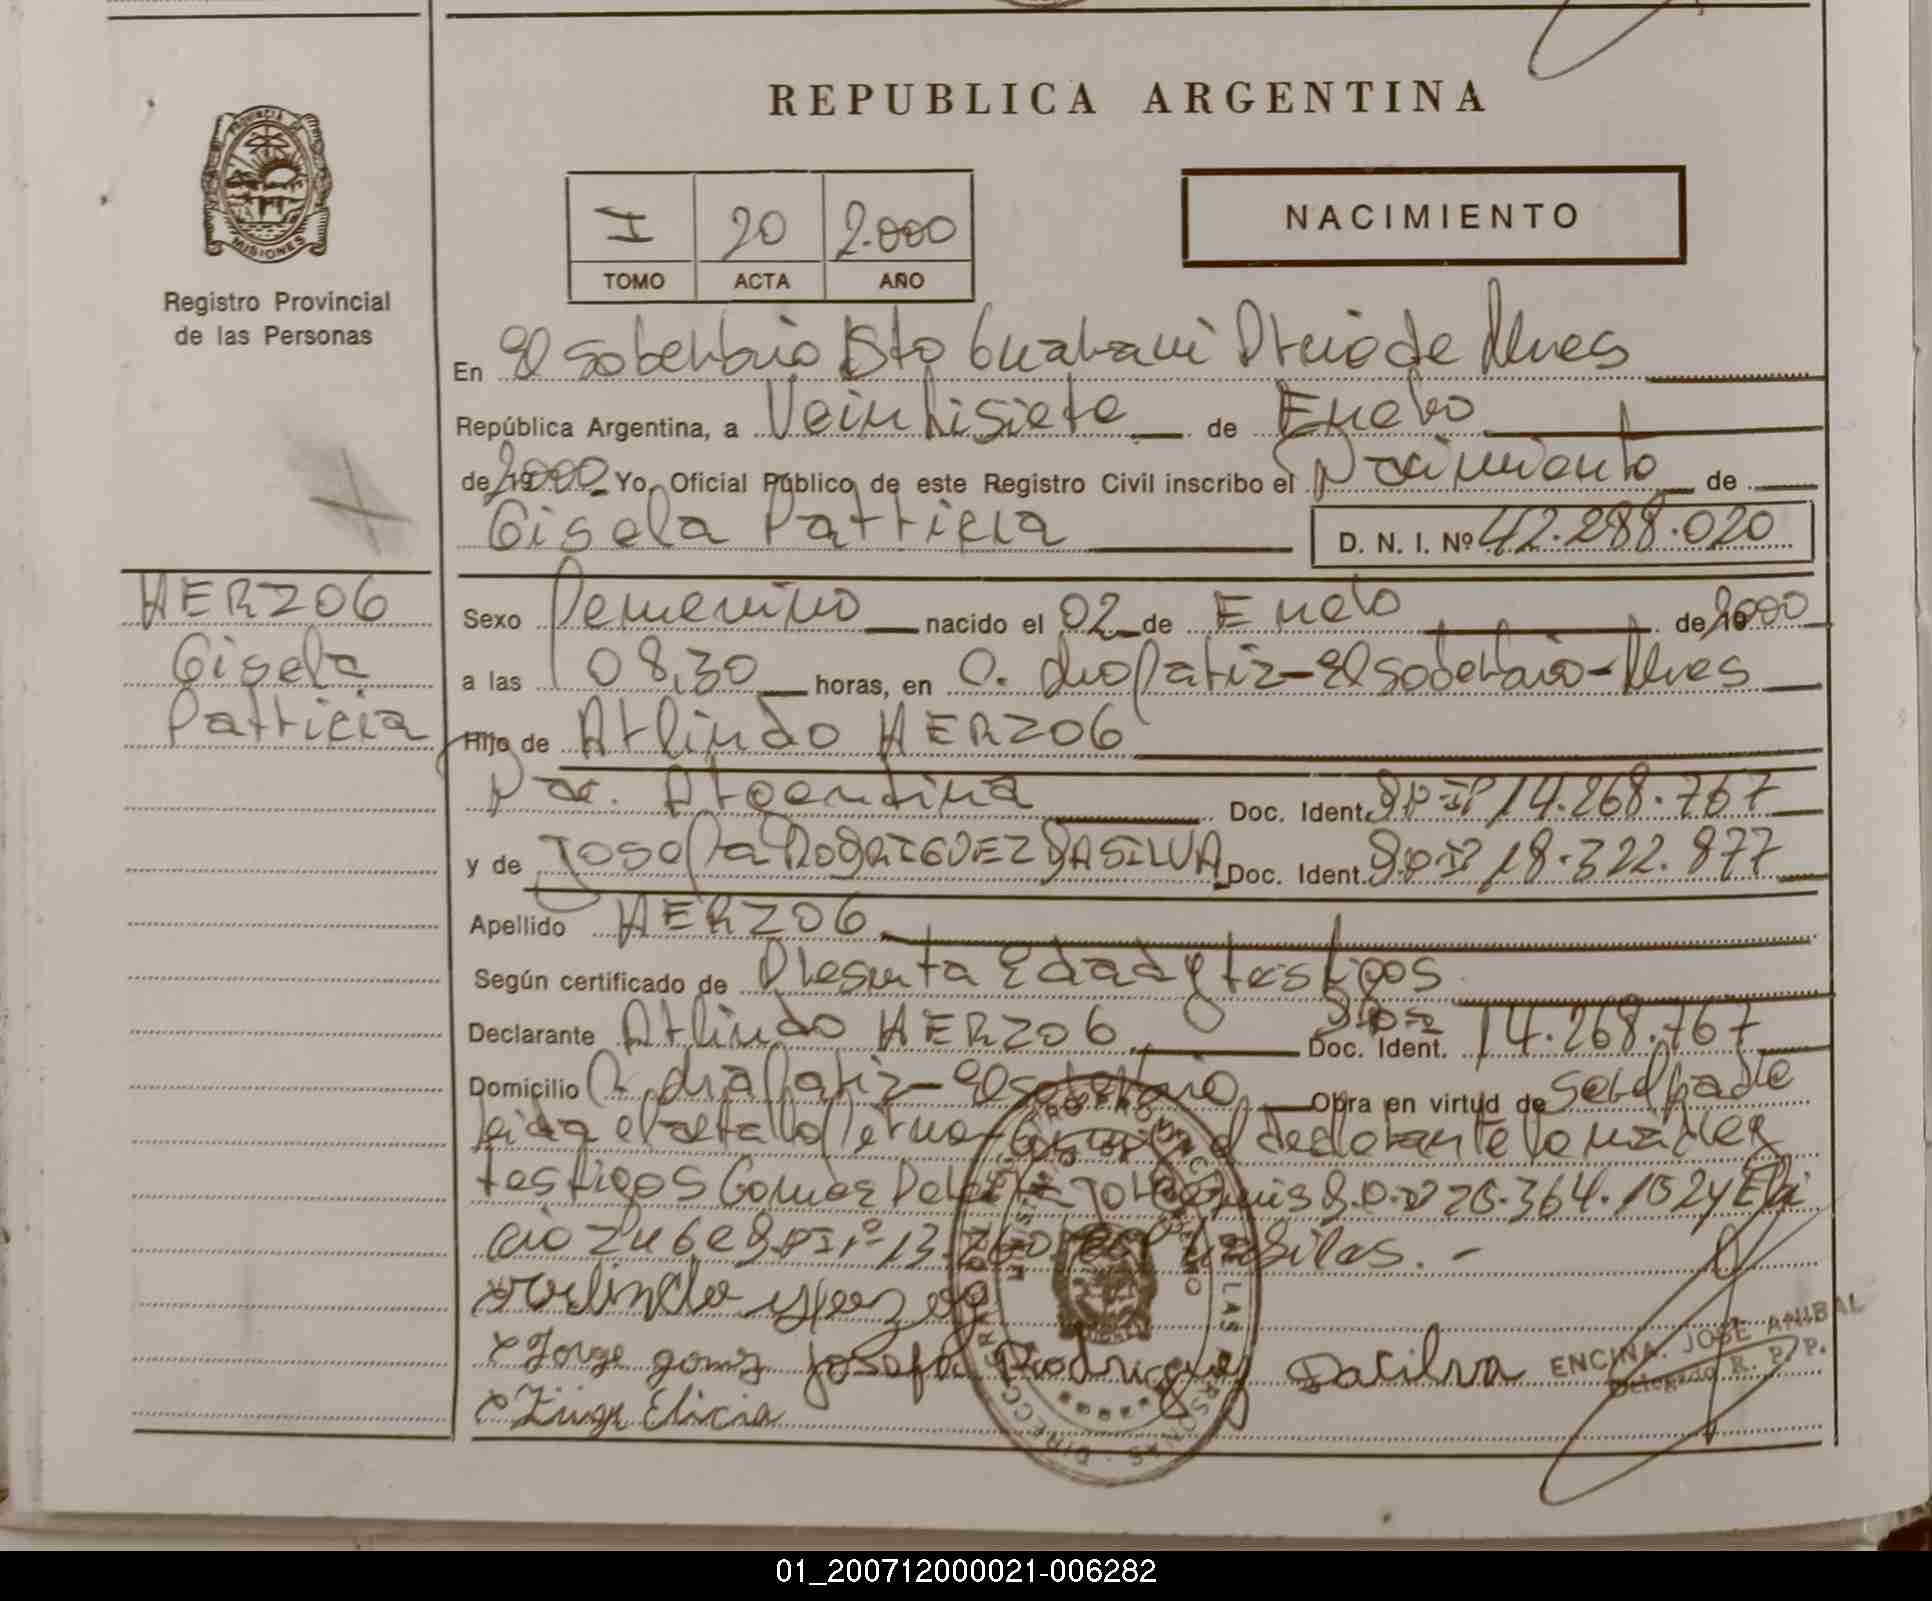 REPUBLICA ARGENTINA
PROVINCIA DE
MISIONES
Registro Provincial
de las Personas
I 20 2.000
TOMO ACTA AÑO
NACIMIENTO
En El Soberbio Dto Guarani Pcia de Mnes
República Argentina, a Veintisiete de Enero
de 2000 Yo, Oficial Público de este Registro Civil inscribo el Nacimiento de
Gisela Patricia D. N. I. Nº 42.288.020
HERZOG
Gisela
Patricia
Sexo Femenino nacido el 02 de Enero de 2000
a las 08,30 horas, en El Soberbio - Mnes
Hijo de Arlindo HERZOG
Nac. Argentina Doc. Ident. 14.268.767
y de Josefa RODRIGUEZ DASILVA Doc. Ident. 18.322.877
Apellido HERZOG
Según certificado de Presunta Edad y testigos
Declarante Arlindo HERZOG Doc. Ident. 14.268.767
Domicilio El Soberbio Obra en virtud de ser el padre
leida el acta la firman el declarante la madre y
testigos Gomez
Jorge Gomez Josefa Rodriguez Dacilva
ENCINA. JOSE ANIBAL
Delegado R. P. P.
01_200712000021-006282